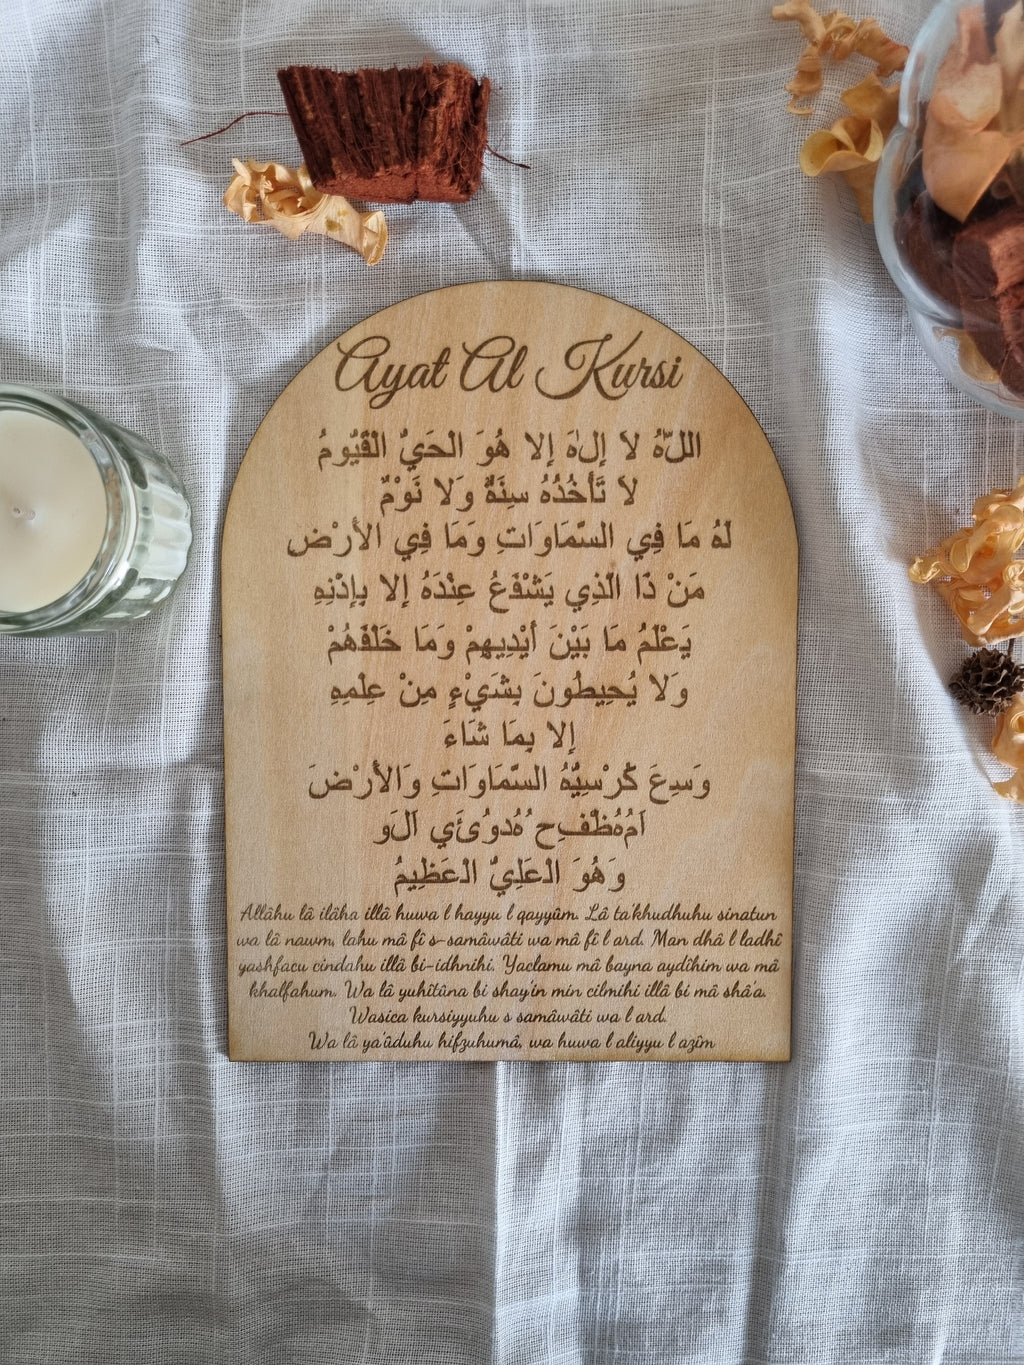 Ayat Al Kursi
اللّهُ لاَ إِلَٰهَ إِلا هُوَ الْحَيُّ الْقَيُّومُ
لاَ تَأْخُذُهُ سِنَةٌ وَلا نَوْمٌ
لَهُ مَا فِي السَّمَاوَاتِ وَمَا فِي الأَرْضِ
مَنْ ذَا الَّذِي يَشْفَعُ عِنْدَهُ إِلا بِإِذْنِهِ
يَعْلَمُ مَا بَيْنَ أَيْدِيهِمْ وَمَا خَلْفَهُمْ
وَلا يُحِيطُونَ بِشَيْءٍ مِنْ عِلْمِهِ
إِلا بِمَا شَاءَ
وَسِعَ كُرْسِيُّهُ السَّمَاوَاتِ وَالأَرْضَ
اَمُهُظْفِح ُهُدوُئَي اَلَو
وَهُوَ الْعَلِيُّ الْعَظِيمُ
Allâhu lâ ilâha illâ huwa l hayyu l qayyûm. Lâ ta'khudhuhu sinatun
wa lâ nawm, lahu mâ fî s-samâwâti wa mâ fî l ard. Man dhâ l ladhî
yashfacu cindahu illâ bi-idhnihi. Yaclamu mâ bayna aydîhim wa mâ
khalfahum. Wa lâ yuhîtûna bi shay'in min cilmihi illâ bi mâ shâ'a.
Wasica kursiyyuhu s samâwâti wa l ard.
Wa lâ ya'ûduhu hifzuhumâ, wa huwa l aliyyu l azîm